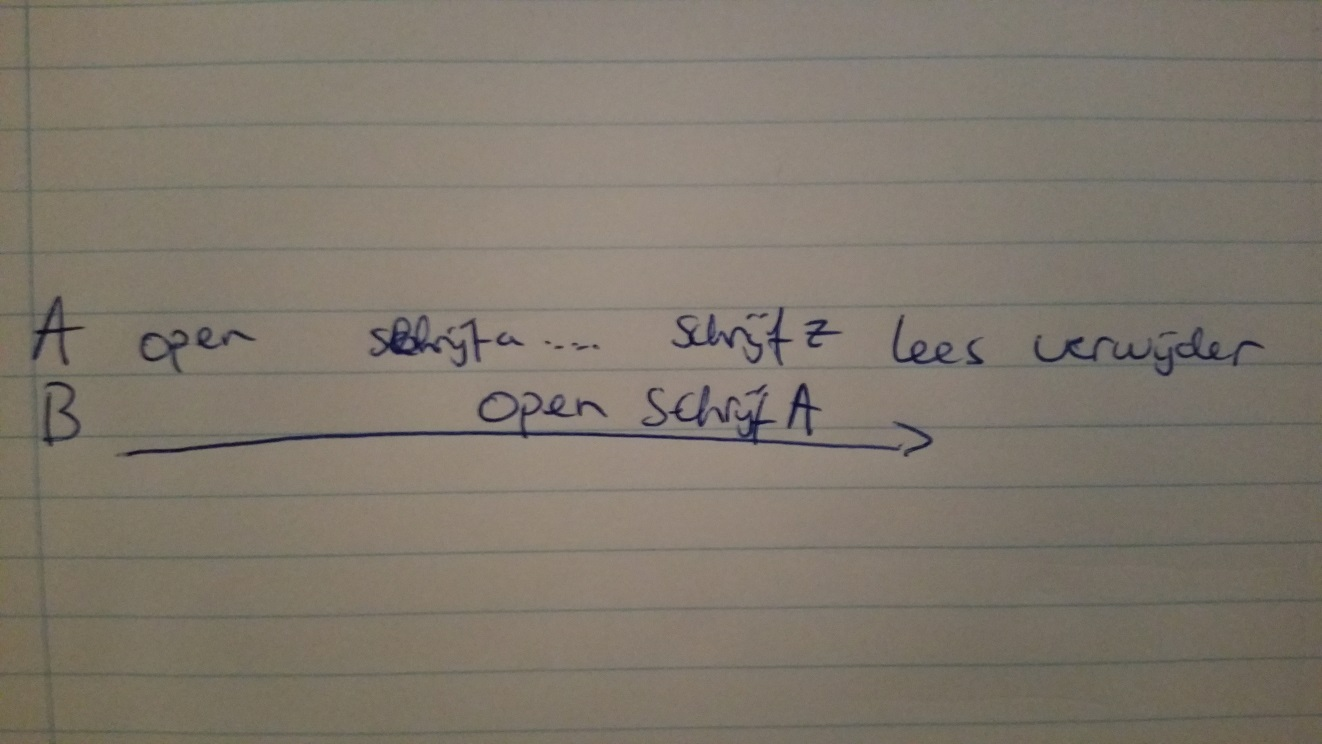 A open schrijf a .... schrijf z lees verwijder
B open schrijf A